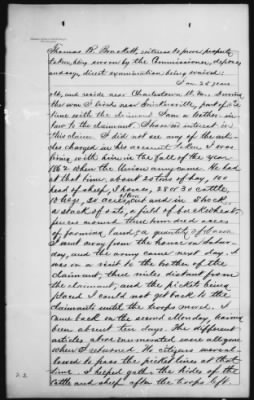 Thomas B. Brackett, witness to prove property
taken, being sworn by the Commissioner, deposes
and says, direct examination being waived:
I am 25 years
old, and reside near Charlestown W. Va. During
the war I lived near Brinkerville, part of the
time with the claimant. I am a brother-in-
law to the claimant. I have no interest in
this claim. I did not see any of the arti-
cles charged in his account taken. I was
living with him in the fall of the year
1862 when the Union army came. He had
at that time, about 20 tons of hay, 100
head of sheep, 7 horses, 28 or 30 cattle,
10 hogs, 20 acres corn cut and in shock
a stack of oats, a field of buckwheat,
fences around three hundred acres
of farming land, & a quantity of bacon
I went away from the house on Satur-
day, and the army came next day. I
was on a visit to the brother of the
claimant, three miles distant from
the claimant, and the pickets being
placed I could not get back to the
claimants until the troops moved. I
came back on the second Monday, having
been about ten days. The different
articles above enumerated were all gone
when I returned. No citizens were al-
lowed to pass the picket lines at that
time. I helped gath the hides of the
cattle and sheep after the troops left.
22